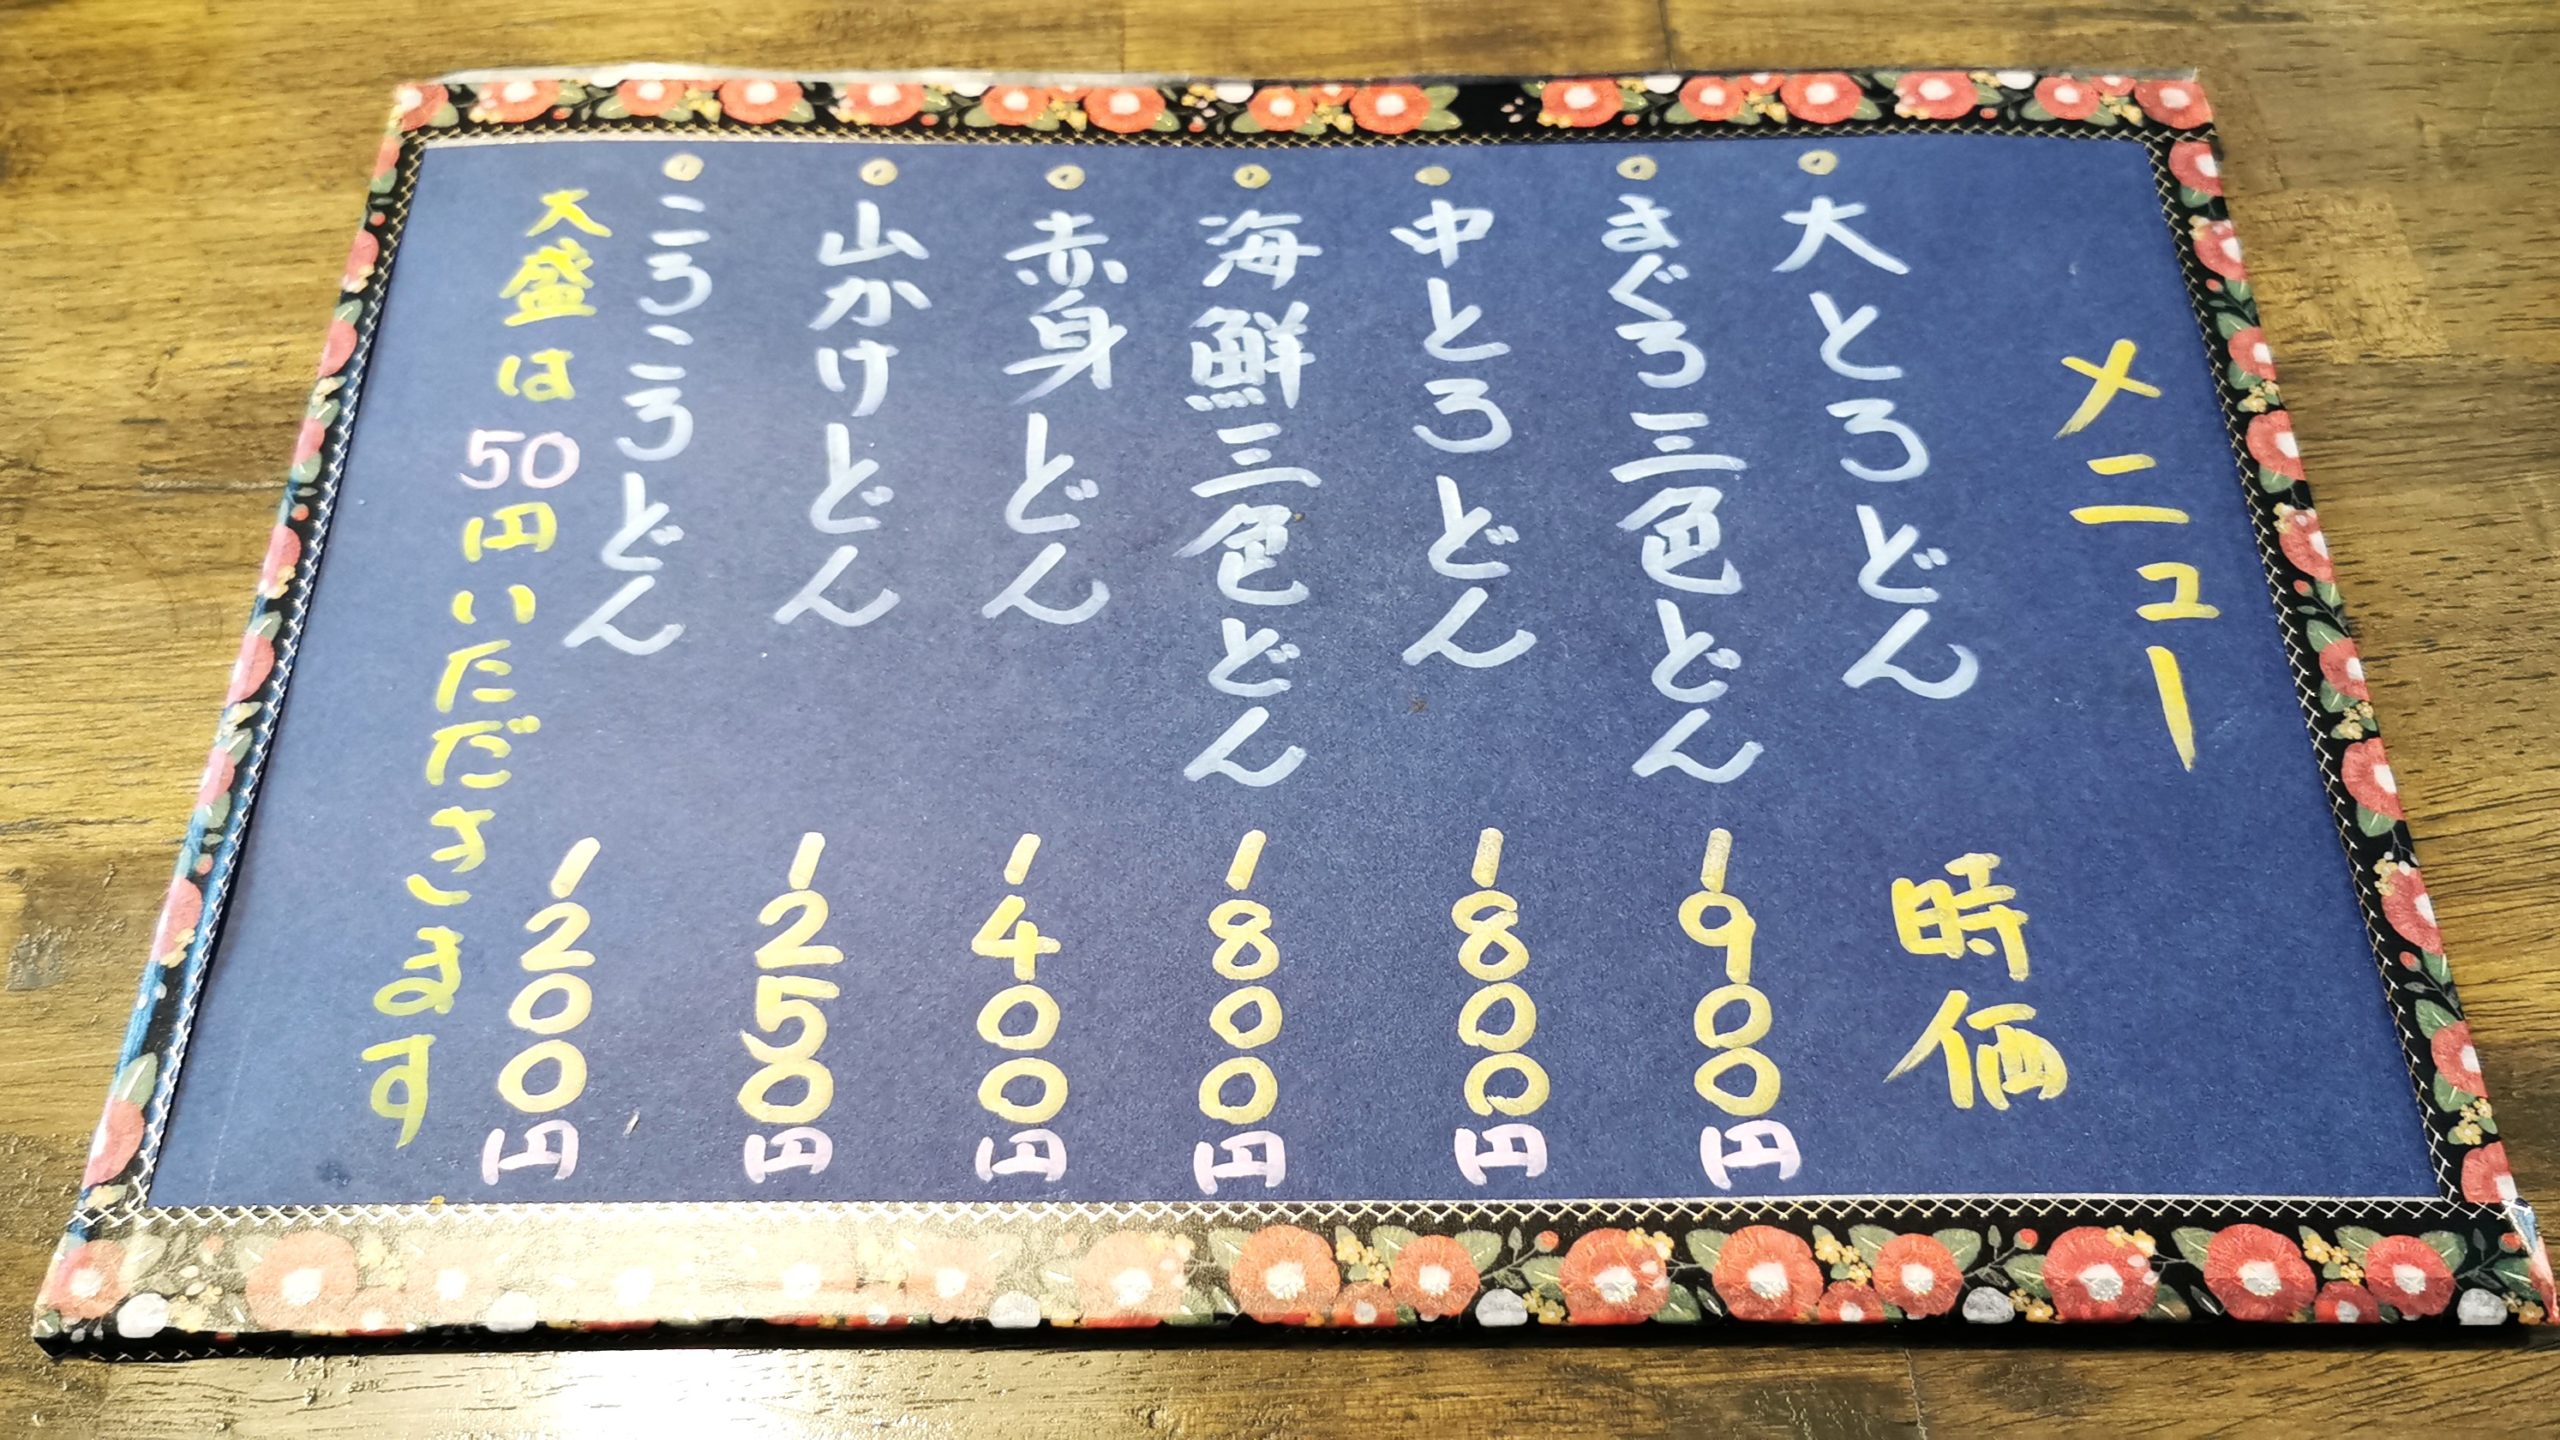 メニュー
大とろどん 時価
まぐろ三色どん 1900円
中とろどん 1800円
海鮮三色どん 1800円
赤身どん 1400円
山かけどん 1250円
ころころどん 1200円
大盛は50円いただきます